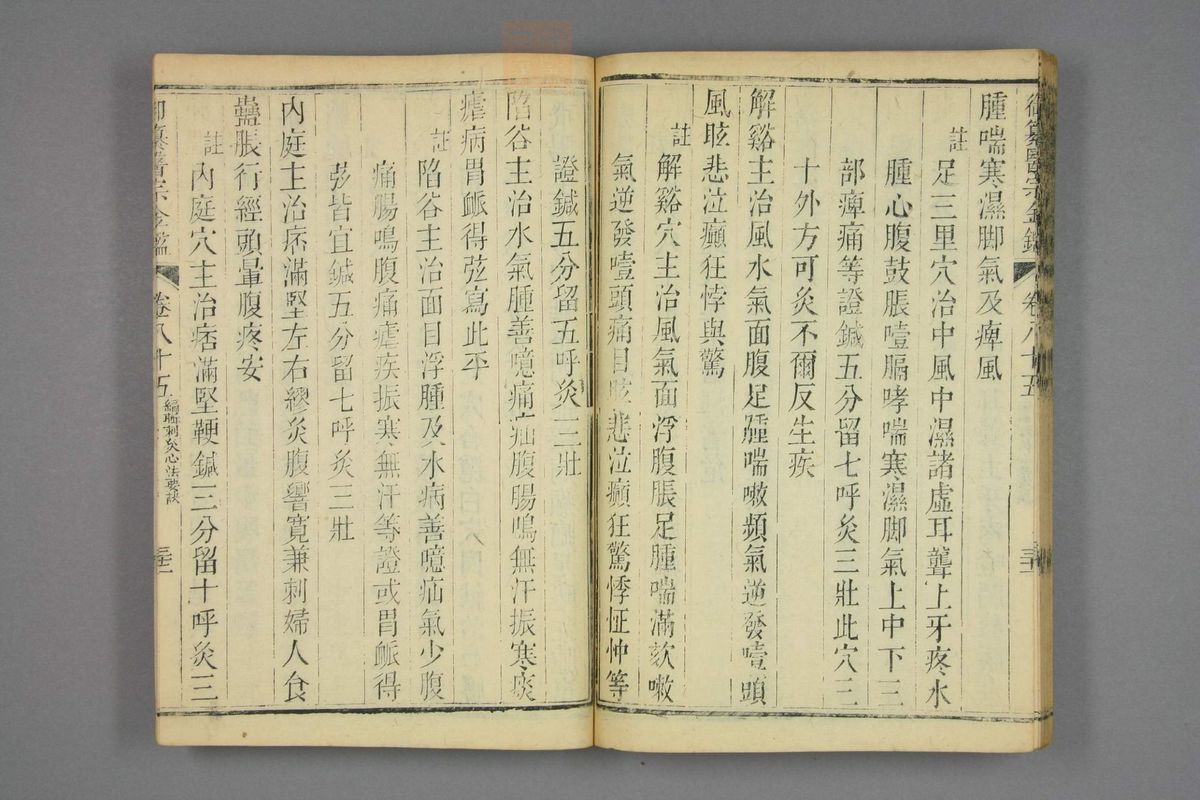 御纂醫宗金鑑 卷八十五 三十一
腫喘寒濕脚氣及痺風
註 足三里穴治中風中濕諸虛耳聾上牙疼水
腫心腹鼓脹噎膈哮喘寒濕脚氣上中下三
部痺痛等證鍼五分留七呼灸三壯此穴三
十外方可灸不爾反生疾
解谿主治風水氣面腹足腫喘嗽頻氣逆發噎頭
風眩悲泣癲狂悸與驚
註 解谿穴主治風氣面浮腹脹足腫喘滿欬嗽
氣逆發噎頭痛目眩悲泣癲狂驚悸怔忡等
證鍼五分留五呼灸三壯
陷谷主治水氣腫善噫痛疝腹腸鳴無汗振寒痰
瘧病胃脈得弦瀉此平
註 陷谷主治面目浮腫及水病善噫疝氣少腹
痛腸鳴腹痛瘧疾振寒無汗等證或胃脈得
弦皆宜鍼五分留七呼灸三壯
內庭主治痞滿堅左右繆灸腹響寬兼刺婦人食
蠱脹行經頭暈腹疼安
註 內庭穴主治痞滿堅鞕鍼三分留十呼灸三
御纂醫宗金鑑 卷八十五 編輯刺灸心法要訣